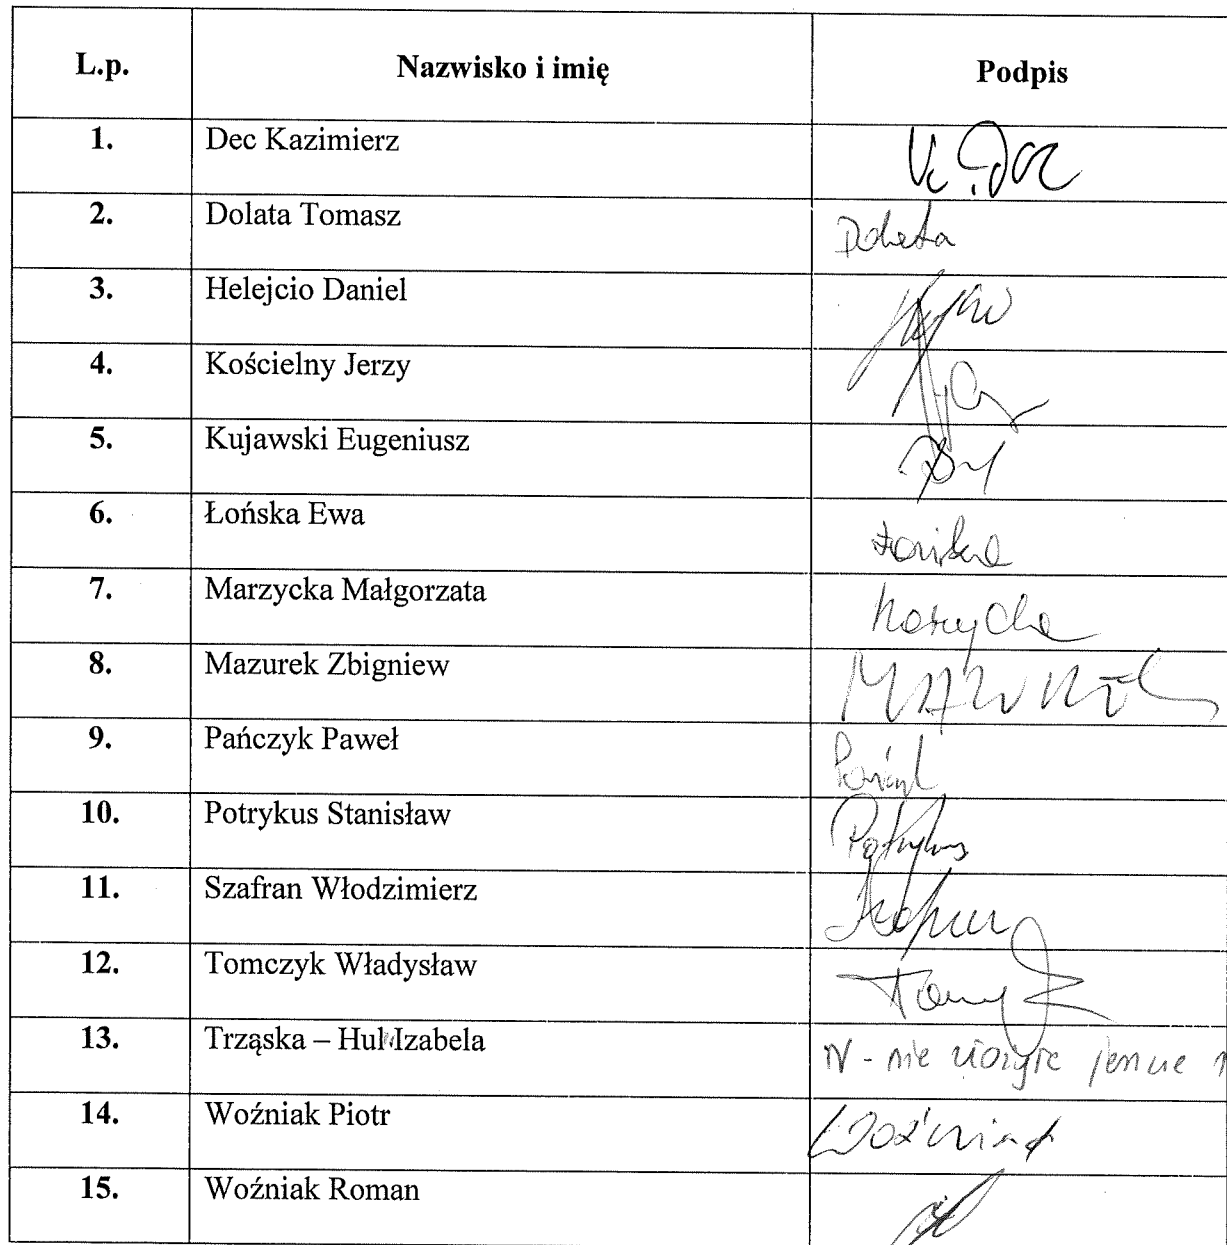 L.p. Nazwisko i imię Podpis
1. Dec Kazimierz
2. Dolata Tomasz Dolata
3. Helejcio Daniel
4. Kościelny Jerzy
5. Kujawski Eugeniusz
6. Łońska Ewa Łońska
7. Marzycka Małgorzata
8. Mazurek Zbigniew MAZUREK
9. Pańczyk Paweł
10. Potrykus Stanisław Potrykus
11. Szafran Włodzimierz
12. Tomczyk Władysław
13. Trząska – Hul Izabela N - nie
14. Woźniak Piotr Woźniak
15. Woźniak Roman